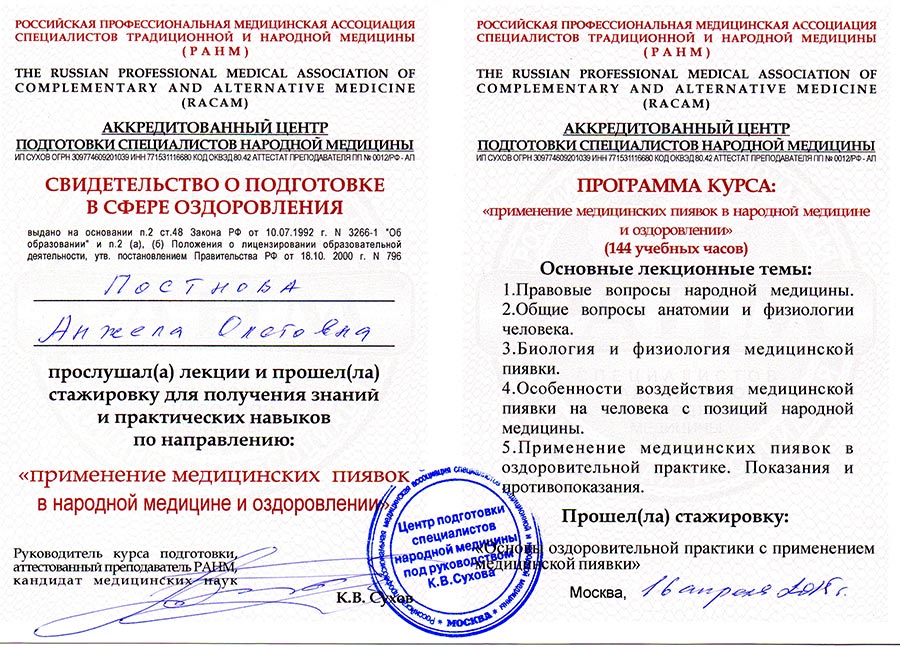 РОССИЙСКАЯ ПРОФЕССИОНАЛЬНАЯ МЕДИЦИНСКАЯ АССОЦИАЦИЯ
СПЕЦИАЛИСТОВ ТРАДИЦИОННОЙ И НАРОДНОЙ МЕДИЦИНЫ
(РАНМ)
THE RUSSIAN PROFESSIONAL MEDICAL ASSOCIATION OF
COMPLEMENTARY AND ALTERNATIVE MEDICINE
(RACAM)
АККРЕДИТОВАННЫЙ ЦЕНТР
ПОДГОТОВКИ СПЕЦИАЛИСТОВ НАРОДНОЙ МЕДИЦИНЫ
ИП СУХОВ ОГРН 309774609201039 ИНН 771531116680 КОД ОКВЭД 80.42 АТТЕСТАТ ПРЕПОДАВАТЕЛЯ ПП № 0012/РФ - АЛ
СВИДЕТЕЛЬСТВО О ПОДГОТОВКЕ
В СФЕРЕ ОЗДОРОВЛЕНИЯ
выдано на основании п.2 ст.48 Закона РФ от 10.07.1992 г. N 3266-1 "Об
образовании" и п.2 (а), (б) Положения о лицензировании образовательной
деятельности, утв. постановлением Правительства РФ от 18.10. 2000 г. N 796
Постнова
Анжела Олеговна
прослушал(а) лекции и прошел(ла)
стажировку для получения знаний
и практических навыков
по направлению:
«применение медицинских пиявок
в народной медицине и оздоровлении»
Руководитель курса подготовки,
аттестованный преподаватель РАНМ,
кандидат медицинских наук
К.В. Сухов
РОССИЙСКАЯ ПРОФЕССИОНАЛЬНАЯ МЕДИЦИНСКАЯ АССОЦИАЦИЯ
СПЕЦИАЛИСТОВ ТРАДИЦИОННОЙ И НАРОДНОЙ МЕДИЦИНЫ
(РАНМ)
THE RUSSIAN PROFESSIONAL MEDICAL ASSOCIATION OF
COMPLEMENTARY AND ALTERNATIVE MEDICINE
(RACAM)
АККРЕДИТОВАННЫЙ ЦЕНТР
ПОДГОТОВКИ СПЕЦИАЛИСТОВ НАРОДНОЙ МЕДИЦИНЫ
ИП СУХОВ ОГРН 309774609201039 ИНН 771531116680 КОД ОКВЭД 80.42 АТТЕСТАТ ПРЕПОДАВАТЕЛЯ ПП № 0012/РФ - АЛ
ПРОГРАММА КУРСА:
«применение медицинских пиявок в народной медицине
и оздоровлении»
(144 учебных часов)
Основные лекционные темы:
1.Правовые вопросы народной медицины.
2.Общие вопросы анатомии и физиологии
человека.
3.Биология и физиология медицинской
пиявки.
4.Особенности воздействия медицинской
пиявки на человека с позиций народной
медицины.
5.Применение медицинских пиявок в
оздоровительной практике. Показания и
противопоказания.
Прошел(ла) стажировку:
«Основы оздоровительной практики с применением
медицинской пиявки»
Москва, 16 апреля 2015 г.
Российская профессиональная медицинская ассоциация специалистов традиционной и народной медицины
* МОСКВА *
Центр подготовки
специалистов
народной медицины
под руководством
К.В.Сухова